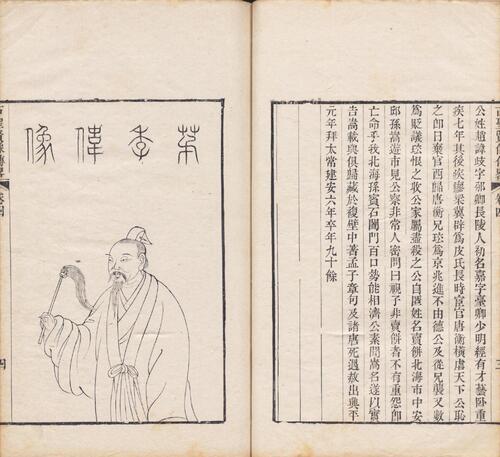 古聖賢像傳畧
卷四
三
公姓趙諱歧字邠卿長陵人初名嘉字臺卿少明經有才藝卧重
疾七年其後疾瘳梁冀辟爲皮氏長時宦官唐衡橫虐天下公恥
之卽日棄官西歸唐衡兄玹爲京兆進不由德公及從兄襲又數
爲貶議玹恨之收公家屬盡殺之公自匿姓名賣餅北海市中安
邱孫嵩遊市見公察非常人密問曰視子非賣餅者不有重怨卽
亡命乎我北海孫賓石闔門百口勢能相濟公素聞嵩名遂以實
告嵩載與俱歸藏於複壁中著孟子章句及諸唐死遇赦出興平
元年拜太常建安六年卒年九十餘
茅季偉像
古聖賢像傳畧
卷四
四